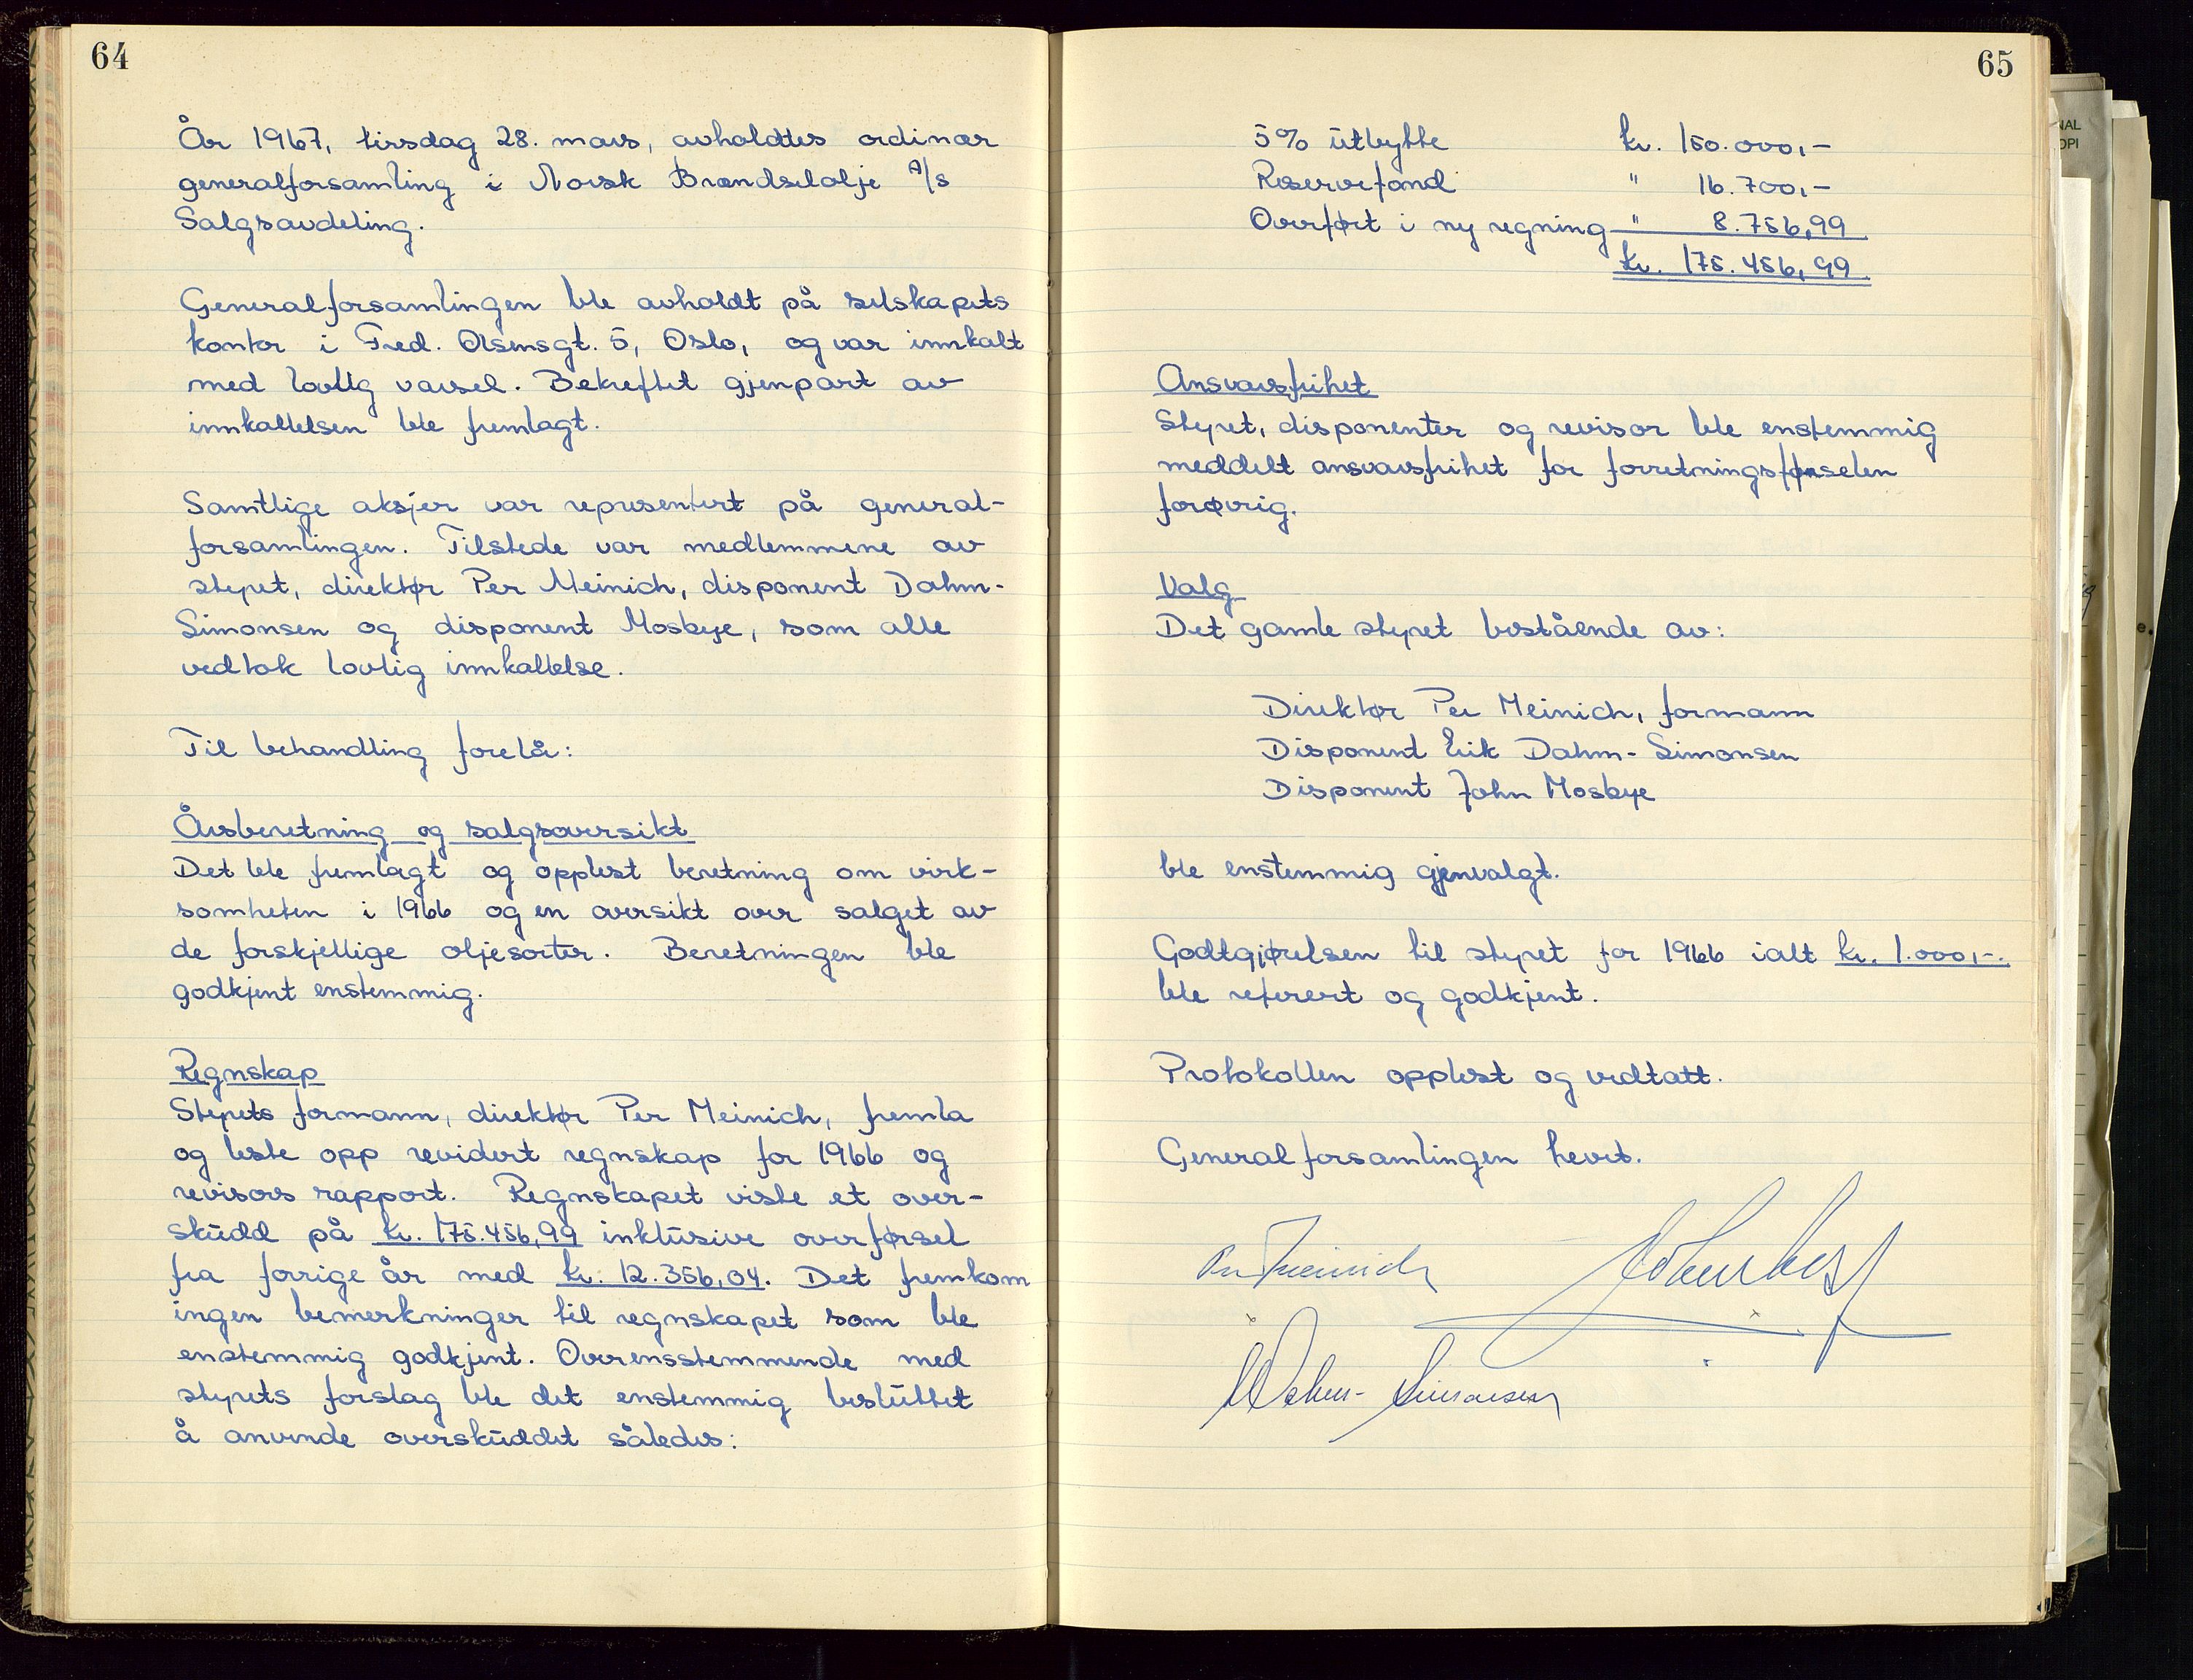 64
År 1967, tirsdag 28. mars, avholdtes ordinær
generalforsamling i Norsk Brændselolje A/S
Salgsavdeling.
Generalforsamlingen ble avholdt på selskapets
kontor i Fred. Olsensgt. 5, Oslo, og var innkalt
med lovlig varsel. Bekreftet gjenpart av
innkallelsen ble fremlagt.
Samtlige aksjer var representert på general-
forsamlingen. Tilstede var medlemmene av
styret, direktør Per Meinich, disponent Dahm-
Simonsen og disponent Mosbye, som alle
vedtok lovlig innkallelse.
Til behandling forelå:
Årsberetning og salgsoversikt
Det ble fremlagt og opplest beretning om virk-
somheten i 1966 og en oversikt over salget av
de forskjellige oljesorter. Beretningen ble
godkjent enstemmig.
Regnskap
Styrets formann, direktør Per Meinich, fremla
og leste opp revidert regnskap for 1966 og
revisors rapport. Regnskapet viste et over-
skudd på kr. 175.456,99 inklusive overførsel
fra forrige år med kr. 12.356,04. Det fremkom
ingen bemerkninger til regnskapet som ble
enstemmig godkjent. Overensstemmende med
styrets forslag ble det enstemmig besluttet
å anvende overskuddet således:
65
5% utbytte kr. 150.000,-
Reservefond " 16.700,-
Overført i ny regning " 8.756,99
kr. 175.456,99
Ansvarsfrihet
Styret, disponenter og revisor ble enstemmig
meddelt ansvarsfrihet for forretningsførselen
forøvrig.
Valg
Det gamle styret bestående av:
Direktør Per Meinich, formann
Disponent Erik Dahm-Simonsen
Disponent John Mosbye
ble enstemmig gjenvalgt.
Godtgjørelsen til styret for 1966 ialt kr. 1.000,-.
ble referert og godkjent.
Protokollen opplest og vedtatt.
Generalforsamlingen hevet.
Per Meinich
Dahm-Simonsen